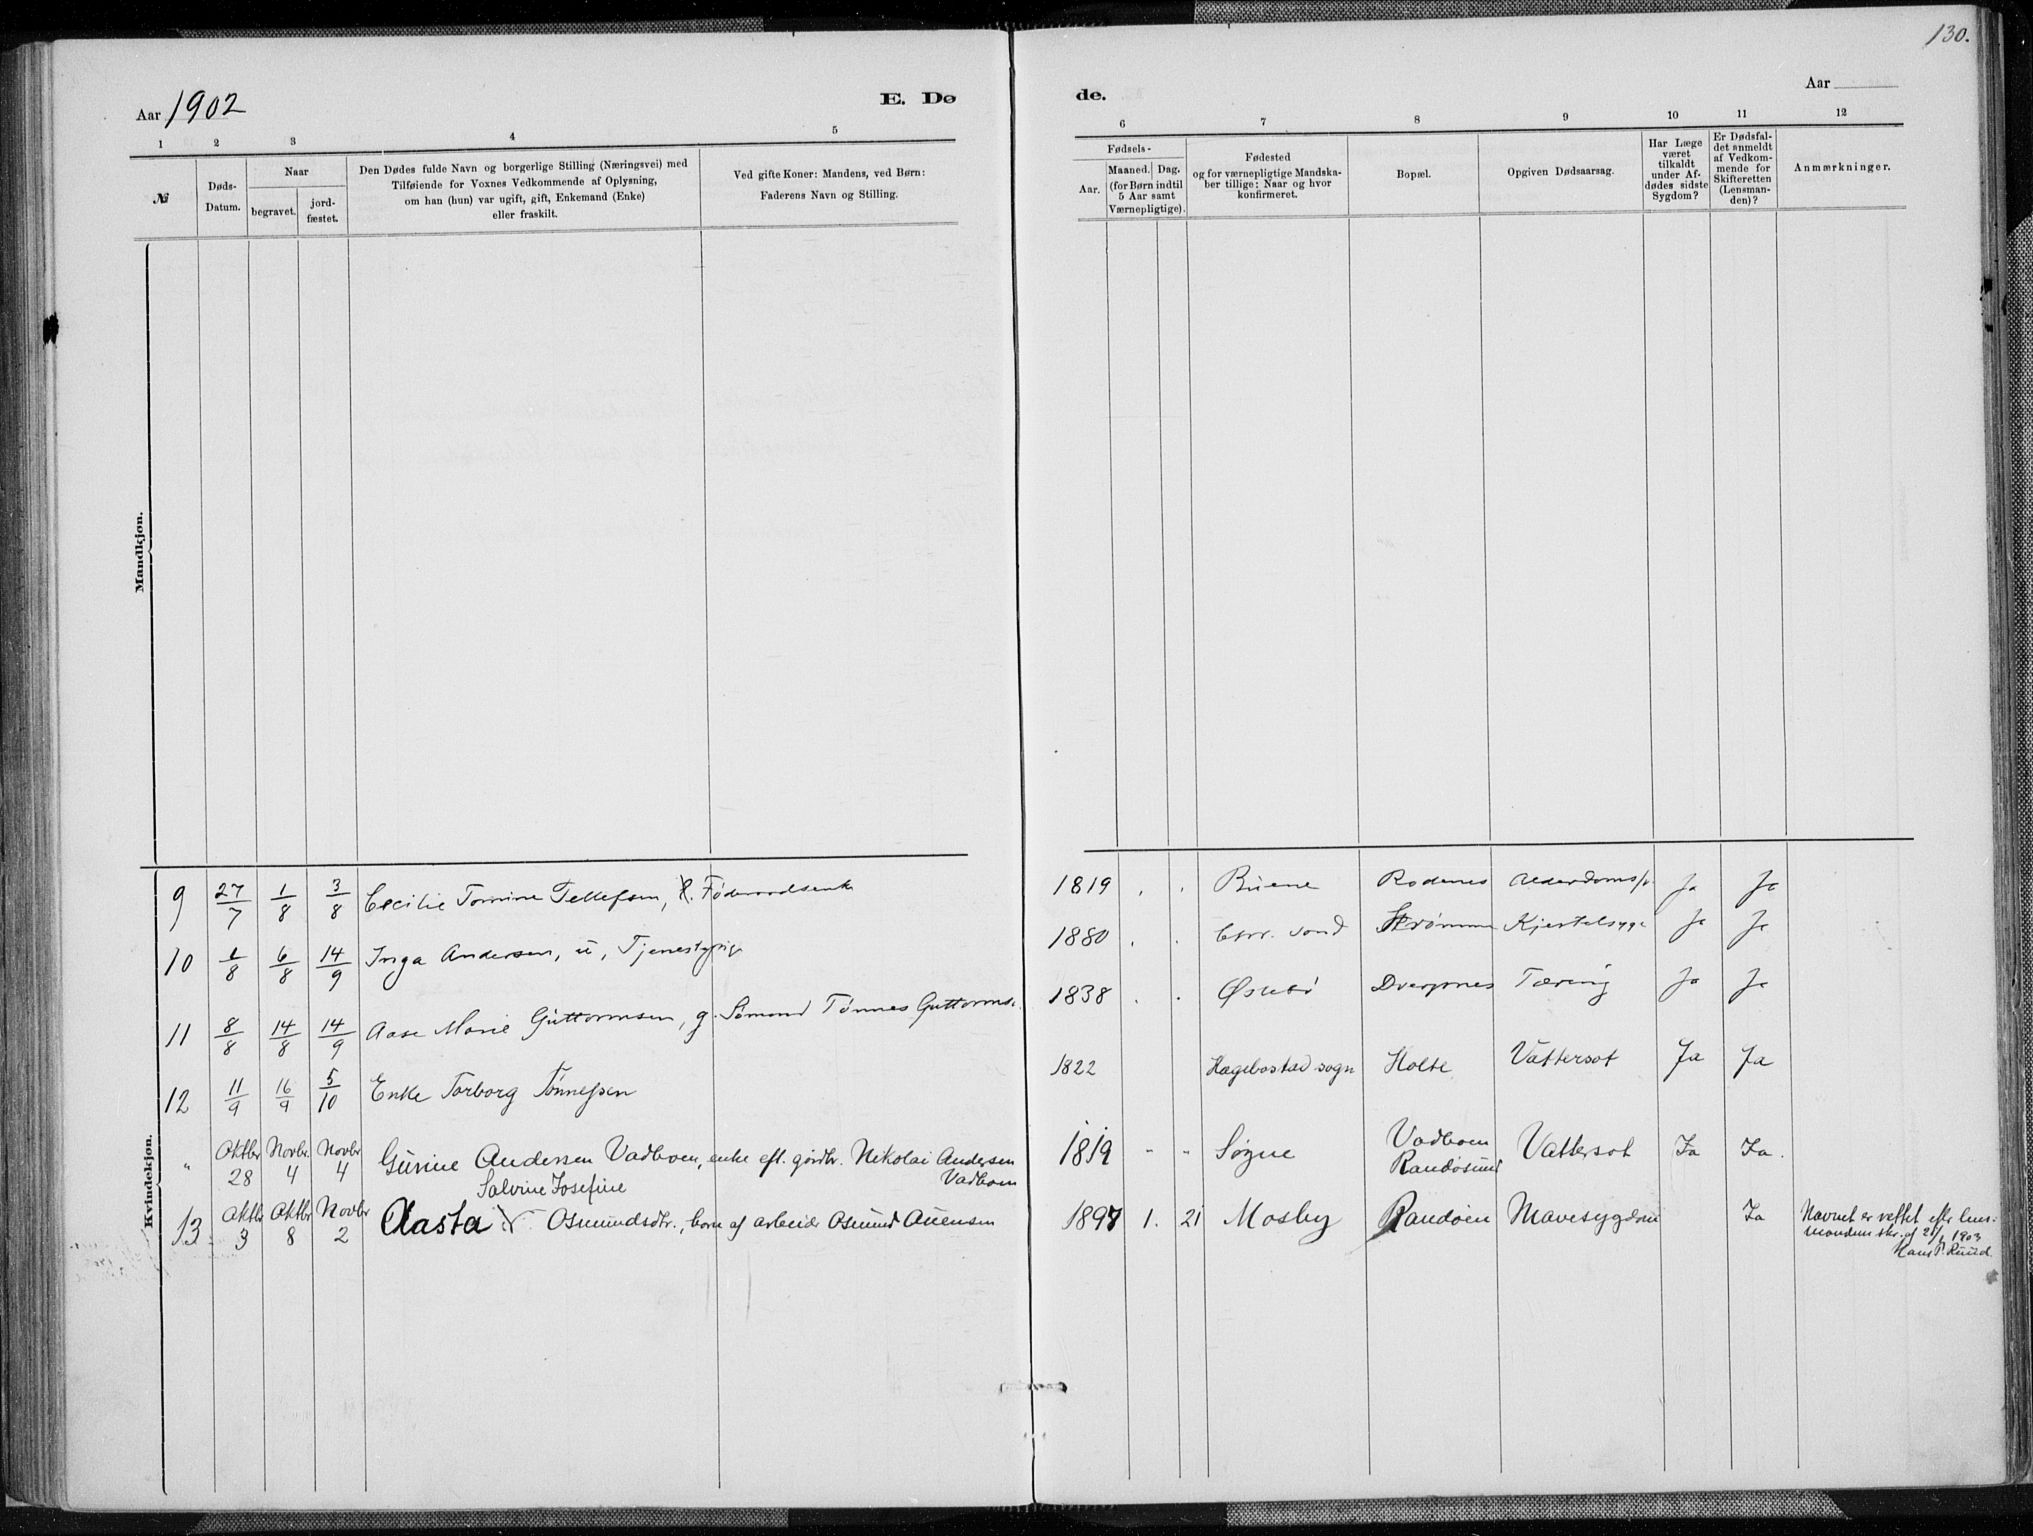 130.
Aar 1902
E. Dø
de.
Aar
1 2 3 4 5
6 7 8 9 10 11 12
№
Døds-
Datum.
Naar
begravet.
jord-
fæstet.
Den Dødes fulde Navn og borgerlige Stilling (Næringsvei) med
Tilføiende for Voxnes Vedkommende af Oplysning,
om han (hun) var ugift, gift, Enkemand (Enke)
eller fraskilt.
Ved gifte Koner: Mandens, ved Børn:
Faderens Navn og Stilling.
Fødsels-
Aar.
Maaned. Dag.
(for Børn indtil
5 Aar samt
Værnepligtige).
Fødested
og for værnepligtige Mandska-
ber tillige: Naar og hvor
konfirmeret.
Bopæl.
Opgiven Dødsaarsag.
Har Læge
været
tilkaldt
under Af-
dødes sidste
Sygdom?
Er Dødsfal-
det anmeldt
af Vedkom-
mende for
Skifteretten
(Lensman-
den)?
Anmærkninger.
Mandkjøn.
Kvindekjøn.
9 27/7 1/8 3/8 Cecilie Tomine Tellefsen, Føderaadsenke 1819 . . Buene Rodenes Alderdomss. Ja Ja
10 1/8 6/8 14/9 Inga Andersen, u, Tjenestepige 1880 . . Chr. sand Strømme Kjertelsyge Ja Ja
11 8/8 14/8 14/9 Aase Marie Guttormsen, g. Sømand Tønnes Guttorms. 1838 . . Øslebø Dvergnes Tæring Ja Ja
12 11/9 16/9 5/10 Enke Torborg Tønnessen 1822 Hægebostad sogn Holte Vattersot Ja Ja
" Oktbr 28 Novbr. 4 Novbr 4 Gurine Andersen Vadboen, enke eft. gårdbr. Nikolai Andersen Vadboen 1819 " " Søgne Vadboen Randøsund Vattersot Ja Ja.
Salvine Josefine
13 Oktbr 3 Oktbr 8 Novbr 2 Aasta Osmundsdtr., barn af arbeider Osmund Auensen 1897 1. 21 Mosby Randøen Mavesygdom Ja Navnet er rettet efter lens-
mandens skr. af 21/1 1903
Hans P. Ruud.